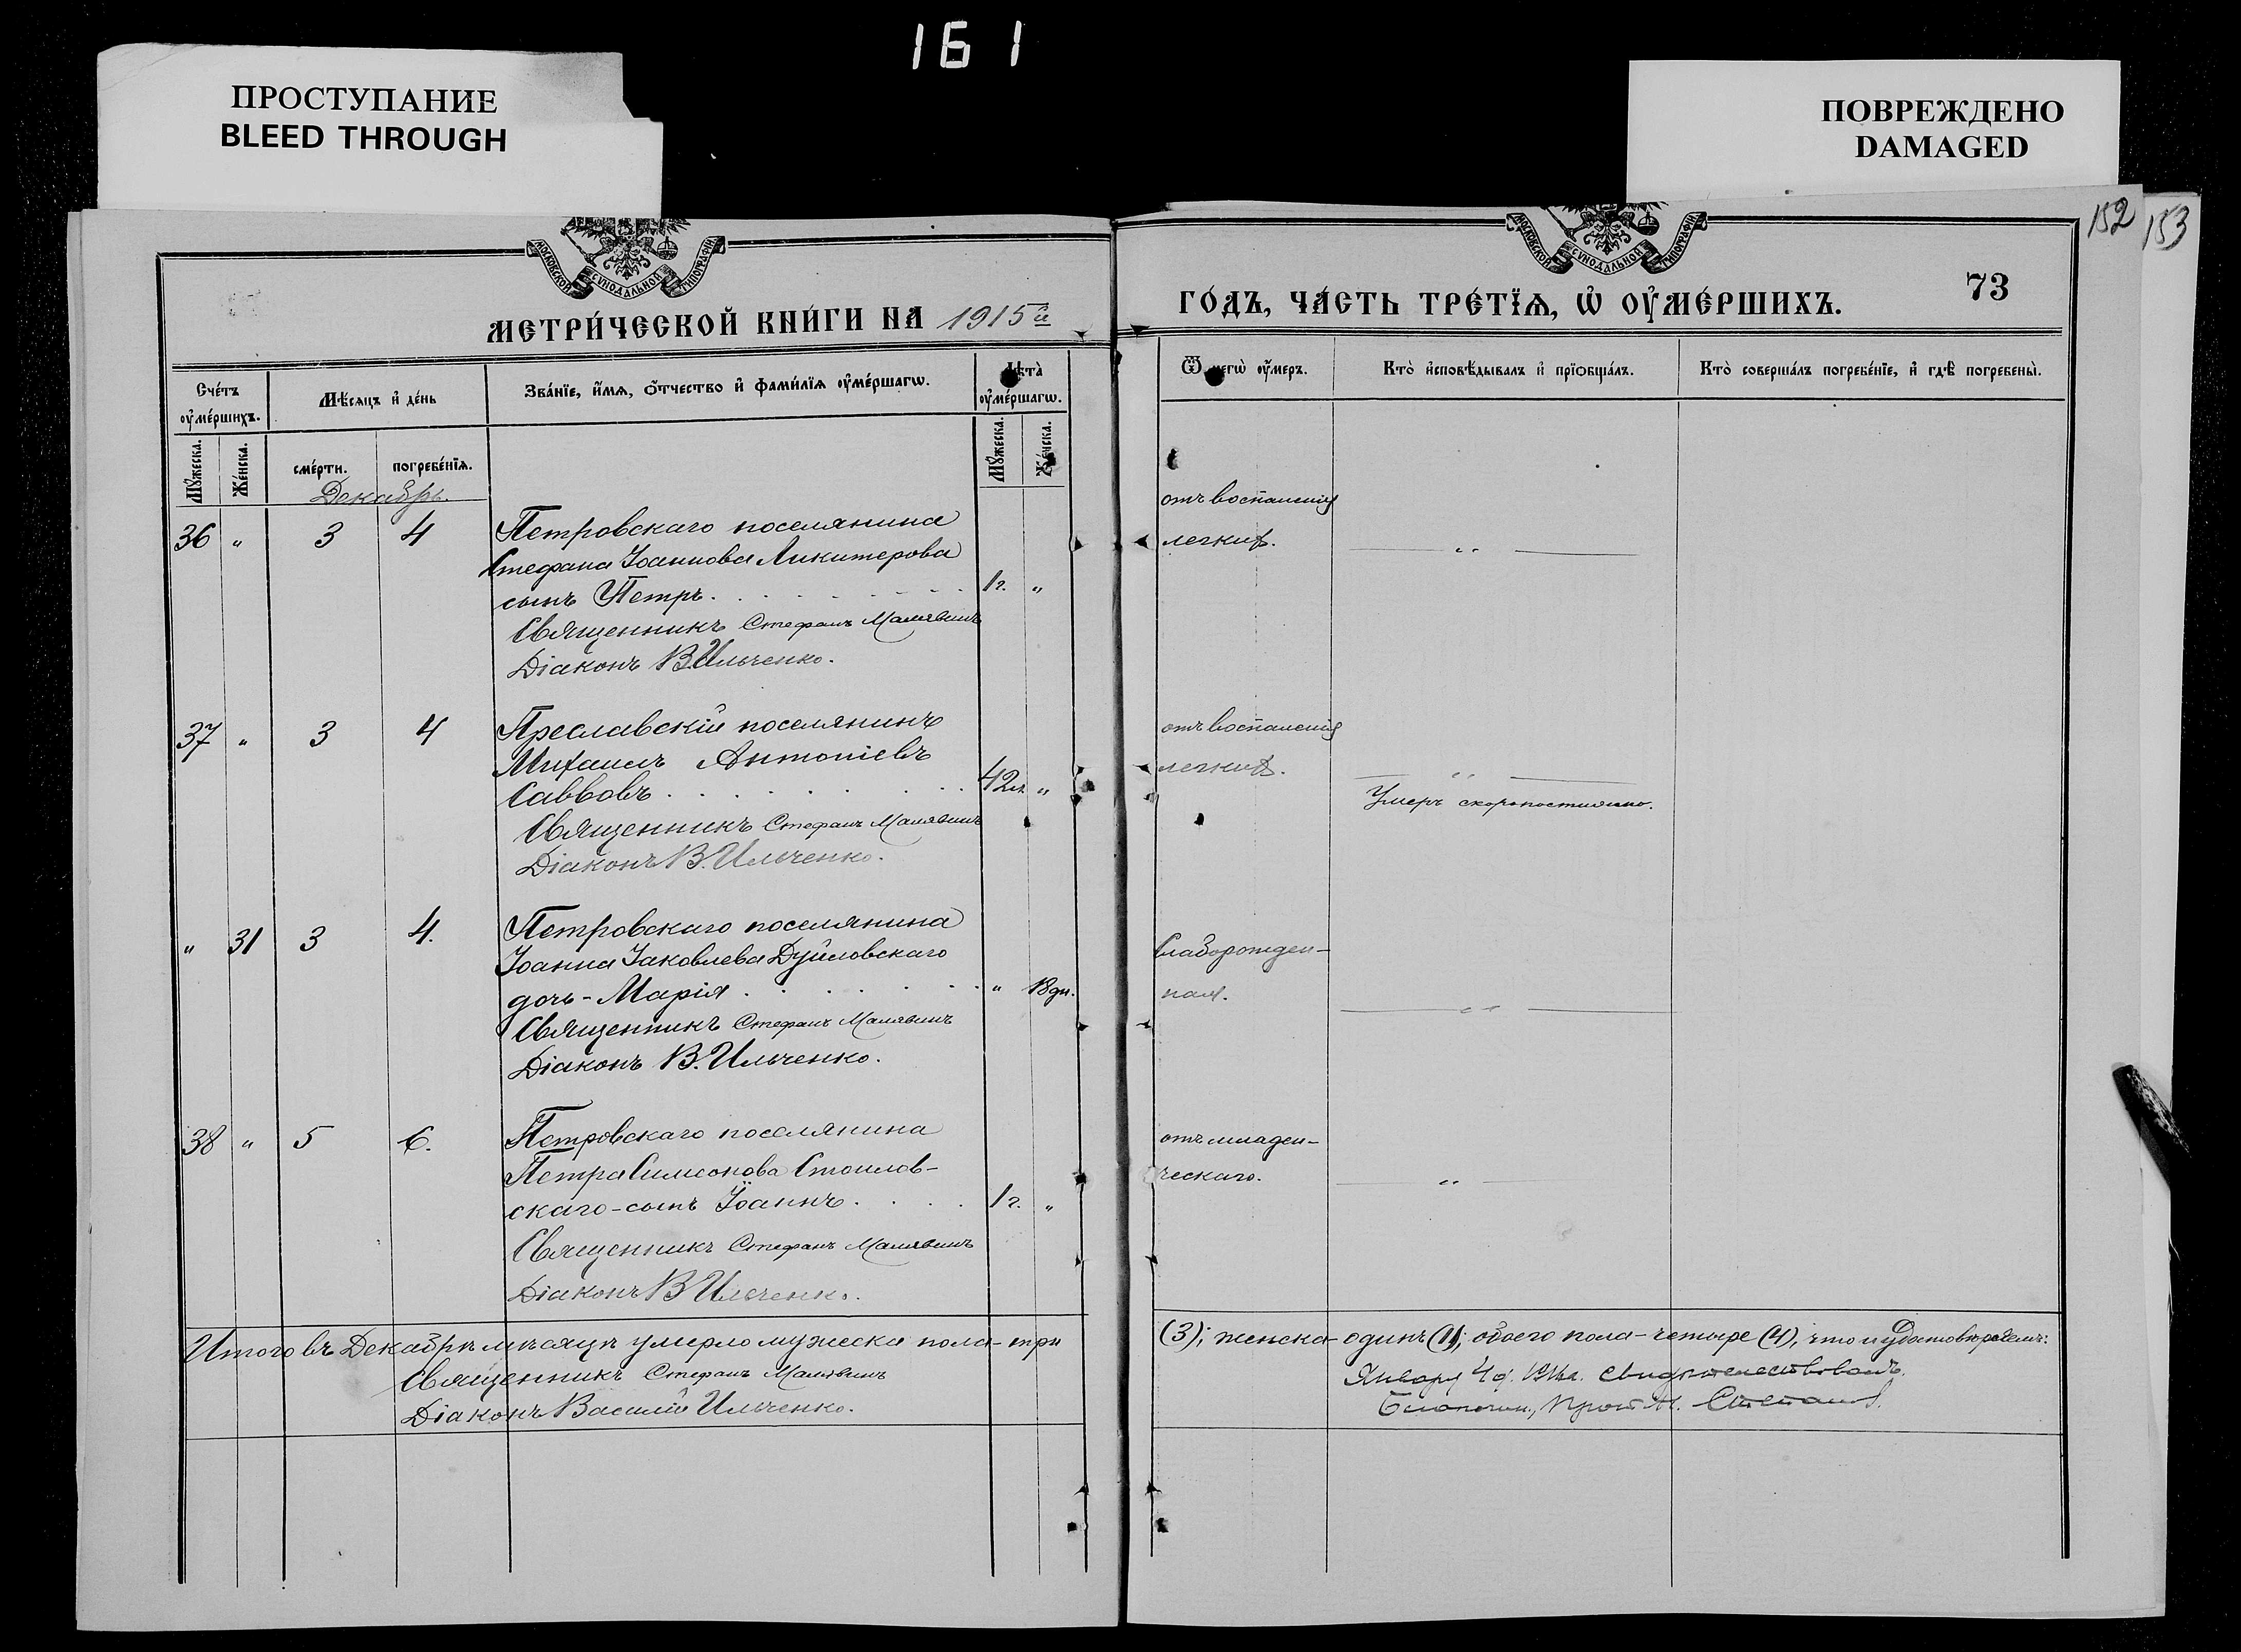 161
ПРОСТУПАНИЕ
BLEED THROUGH
ПОВРЕЖДЕНО
DAMAGED
152 153
МОСКОВСКОЙ СѴНОДАЛЬНОЙ ТИПОГРАФІИ
МОСКОВСКОЙ СѴНОДАЛЬНОЙ ТИПОГРАФІИ
МЕТРИ́ЧЕСКОЙ КНИ́ГИ НА 1915й
ГО́ДЪ, ЧА́СТЬ ТРЕ́ТЇѦ, Ѡ҆ ОУ҆МЕ́РШИХЪ.
73
Сче́тъ оу҆ме́ршихъ.
Мѣ́сяцъ и҆ де́нь
Зва́нїе, и҆́мѧ, ѻ҆́тчество и҆ фами́лїѧ оу҆ме́ршагѡ.
Лѣта̀ оу҆ме́ршагѡ.
Ѿ чегѡ̀ оу҆́меръ.
Кто̀ и҆сповѣ́дывалъ и҆ прїѻбща́лъ.
Кто̀ соверша́лъ погребе́нїе, и҆ гдѣ̀ погребены̀.
Мꙋ́жеска.
Же́нска.
сме́рти.
погребе́нїѧ.
Мꙋ́жеска.
Же́нска.
Декабрь.
36 " 3 4 Петровскаго поселянина
Стефана Іоаннова Анкитерова
сынъ Петръ. 1г. "
Священникъ Стефанъ Малявинъ
Діаконъ В.Ильченко.
отъ воспаленія
легкихъ.
"
37 " 3 4 Преславскій поселянинъ
Михаилъ Антоніевъ
Саввовъ 42л. "
Священникъ Стефанъ Малявинъ
Діаконъ В.Ильченко.
отъ воспаленія
легкихъ.
"
Умеръ скоропостижно.
" 31 3 4. Петровскаго поселянина
Іоанна Іаковлева Дуйловскаго
дочь - Марія " 18дн.
Священникъ Стефанъ Малявинъ
Діаконъ В.Ильченко.
Слаборожден-
ная.
"
38 " 5 6. Петровскаго поселянина
Петра Симеонова Стоилов-
скаго - сынъ Іоаннъ 1г. "
Священникъ Стефанъ Малявинъ
Діаконъ В Ильченко.
отъ младен-
ческаго.
"
Итого въ Декабрѣ мѣсяцѣ умерло мужеска пола - три
(3); женска - одинъ (1); обоего пола - четыре (4), что и удостовѣряемъ:
Священникъ Стефанъ Малявинъ
Діаконъ Василій Ильченко.
Января свидѣтельствовалъ
Благочин., Прот.